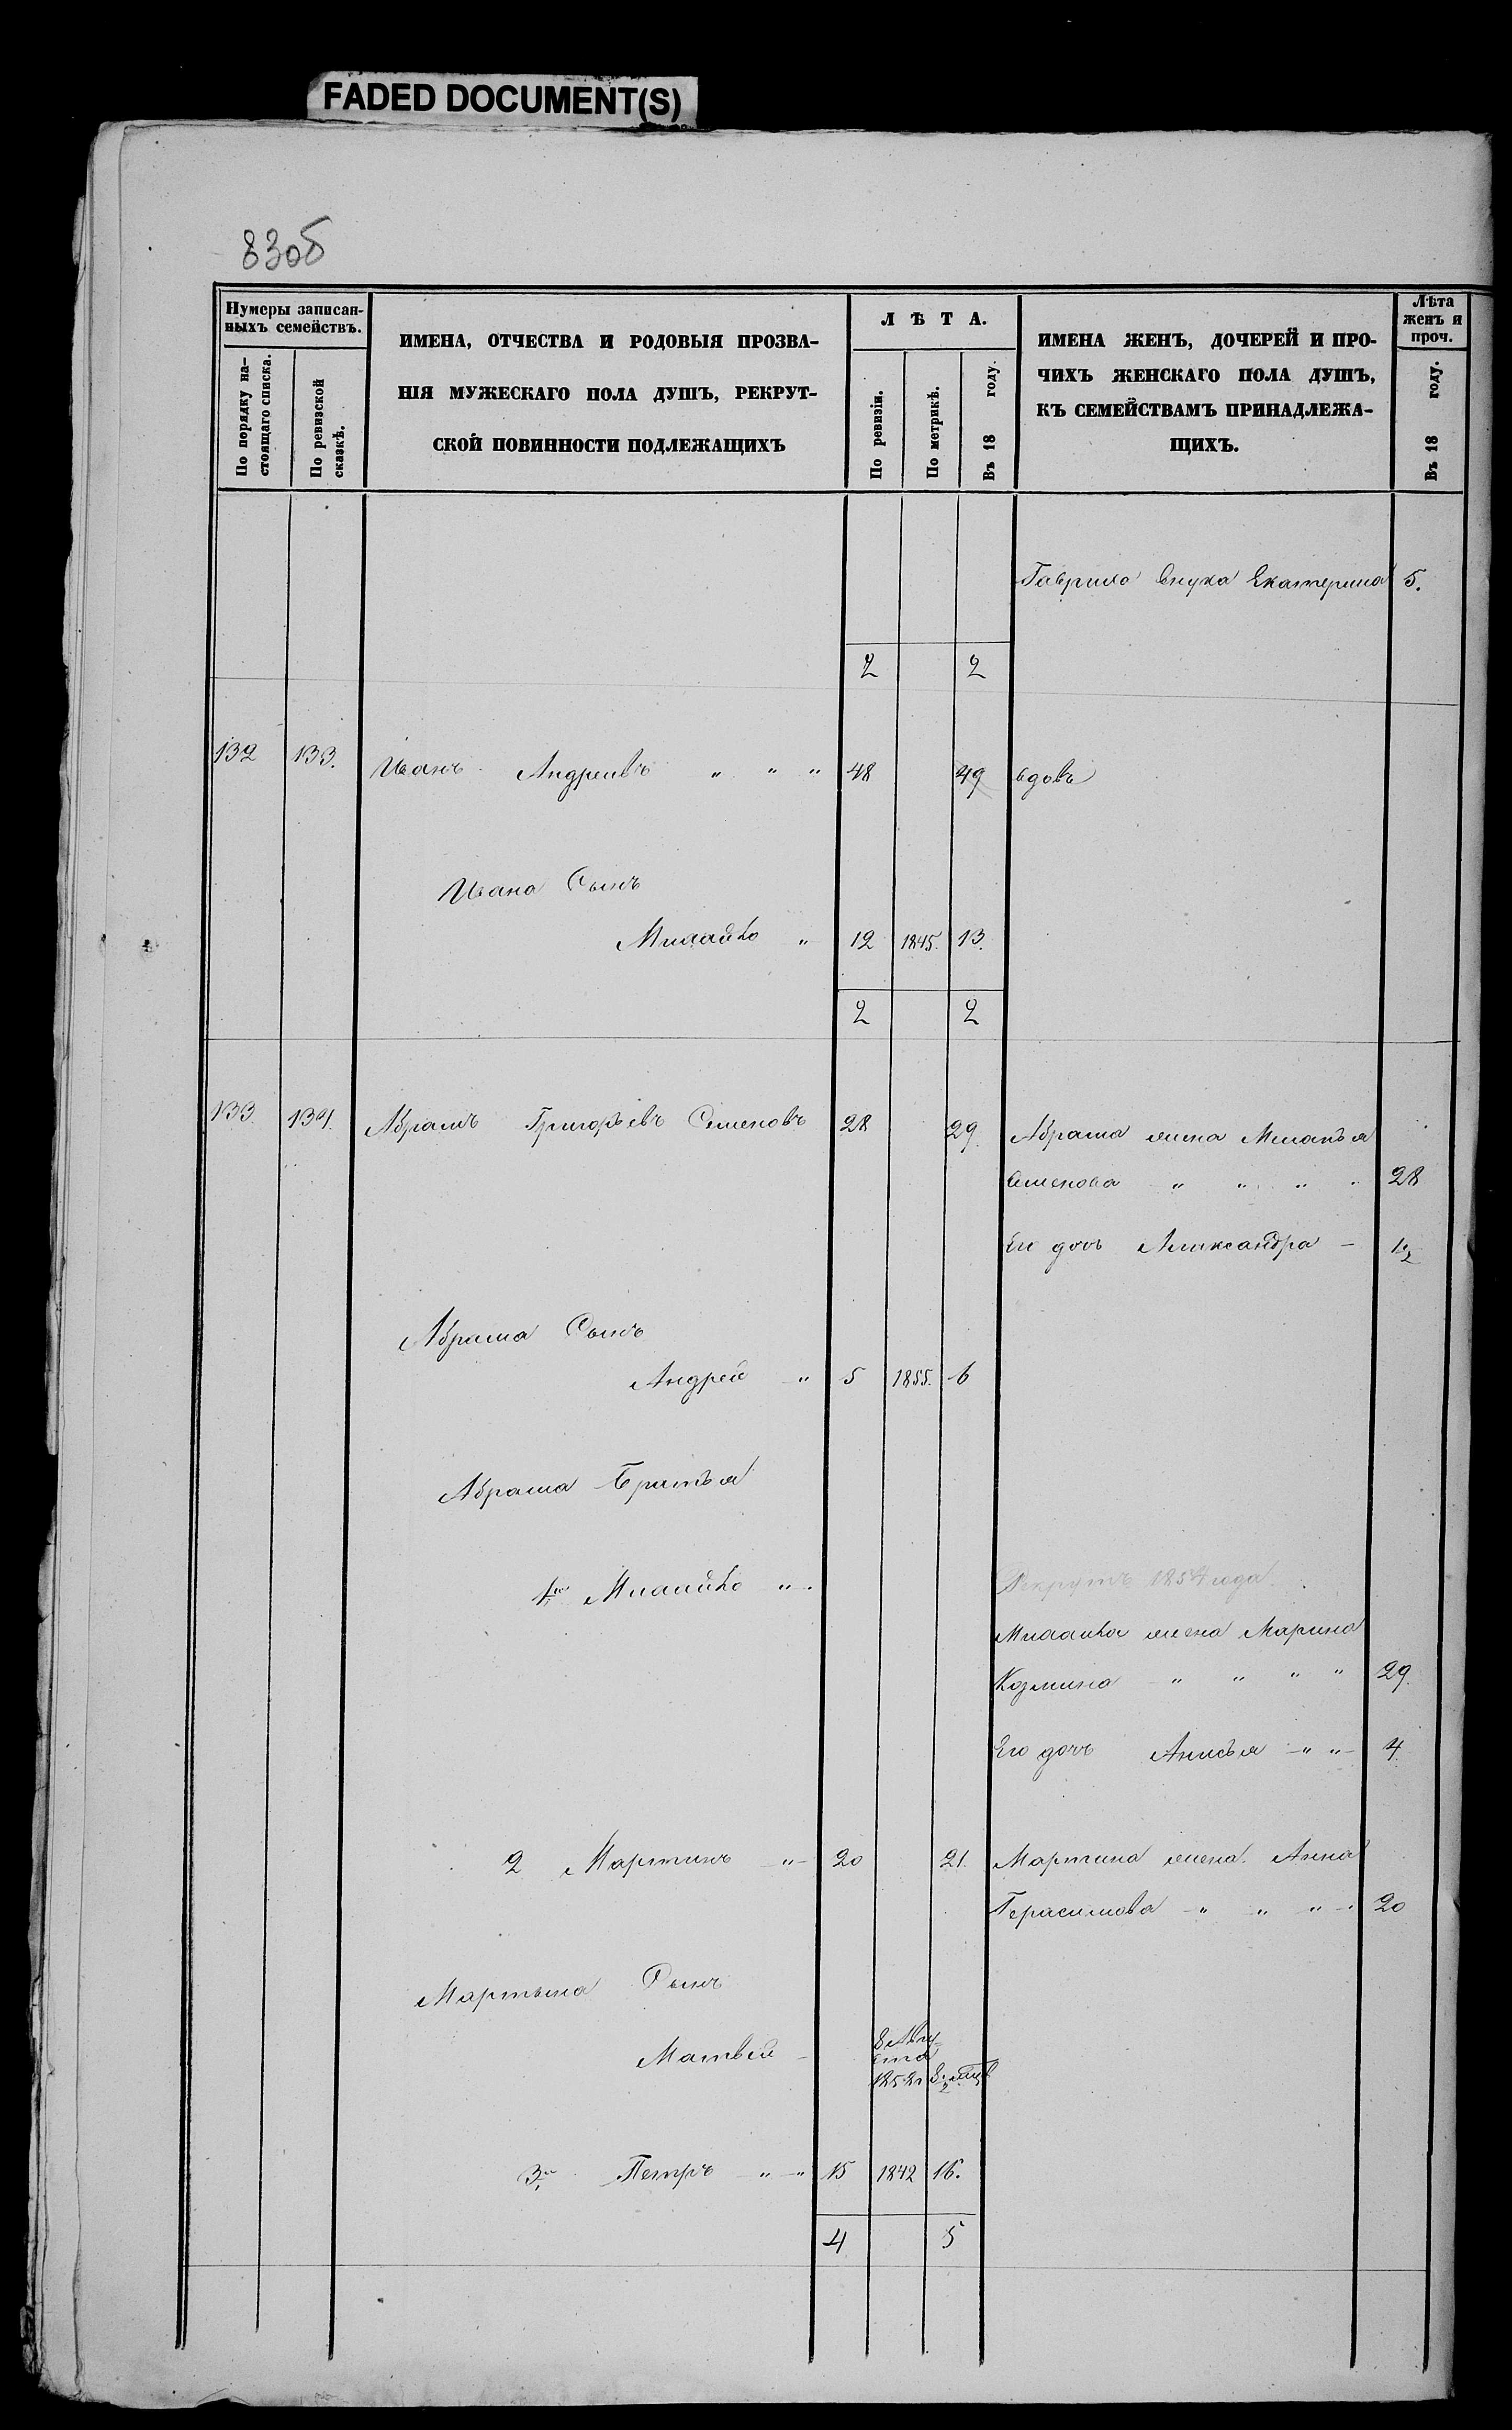 FADED DOCUMENT(S)
83об
Нумеры записан-
ныхъ семействъ.
По порядку на-
стоящаго списка.
По ревизской
сказкѣ.
ИМЕНА, ОТЧЕСТВА И РОДОВЫЯ ПРОЗВА-
НІЯ МУЖЕСКАГО ПОЛА ДУШЪ, РЕКРУТ-
СКОЙ ПОВИННОСТИ ПОДЛЕЖАЩИХЪ
ЛѢТА.
По ревизіи.
По метрикѣ.
Въ 18 году.
ИМЕНА ЖЕНЪ, ДОЧЕРЕЙ И ПРО-
ЧИХЪ ЖЕНСКАГО ПОЛА ДУШЪ,
КЪ СЕМЕЙСТВАМЪ ПРИНАДЛЕЖА-
ЩИХЪ.
Лѣта
женъ и
проч.
Въ 18 году.
Гаврило внука Екатерина 5.
2 2
132 133. Иванъ Андреевъ " " " 48 49 вдовъ
Ивана Сынъ
Михайло " 12 1845. 13.
2 2
133. 134. Абрамъ Григорьевъ Семеновъ 28 29. Абрама жена Меланья
Семенова " " " " 28
Его дочь Александра - 1/2
Абрама Сынъ
Андрей " 5 1855. 6
Абрама Братья
1й Михайло " Рекрутъ 1854 года.
Михайла жена Марина
Козмина " " " " 29.
Его дочь Анисья " " 4.
2 Мартинъ " 20 21. Мартина жена Анна
Герасимова " " " " 20
Мартына Сынъ
Матвей -
3й Петръ " " 15 1842 16.
4 5